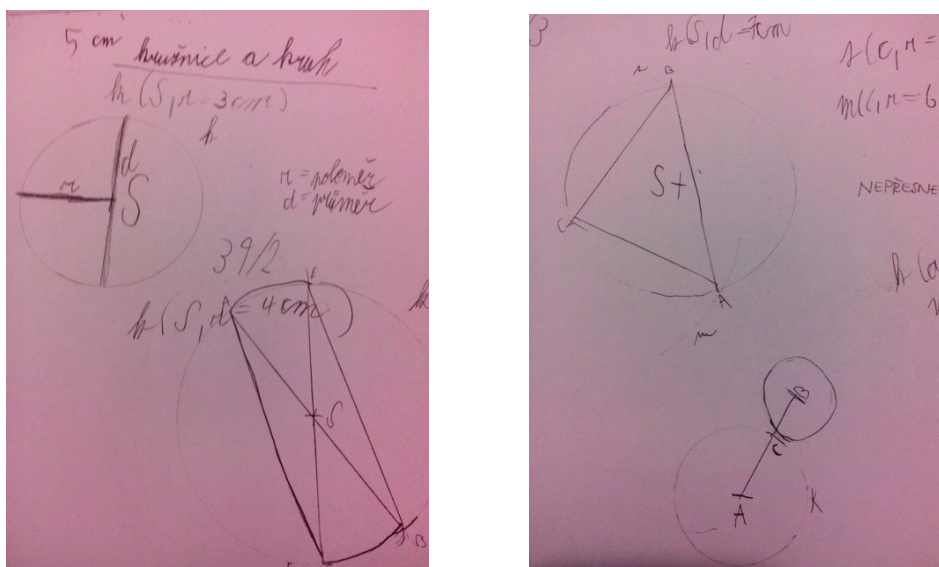 5 cm
kružnice a kruh
k (S, r = 3 cm)
k
d
r
S
r = poloměr
d = průměr
39/2
E
k (S, d = 4 cm)
k
S
B
3
k (S, d = 7 cm
B
S
C
A
m
m(C, r = 6
NEPŘESNE
B
C
A
K